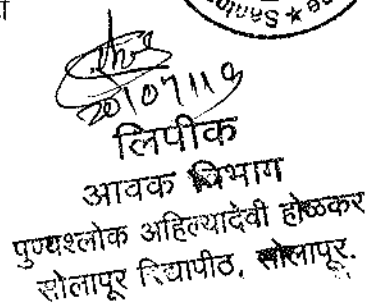 20/07/19
लिपीक
आवक विभाग
पुण्यश्लोक अहिल्यादेवी होळकर
सोलापूर विद्यापीठ, सोलापूर.